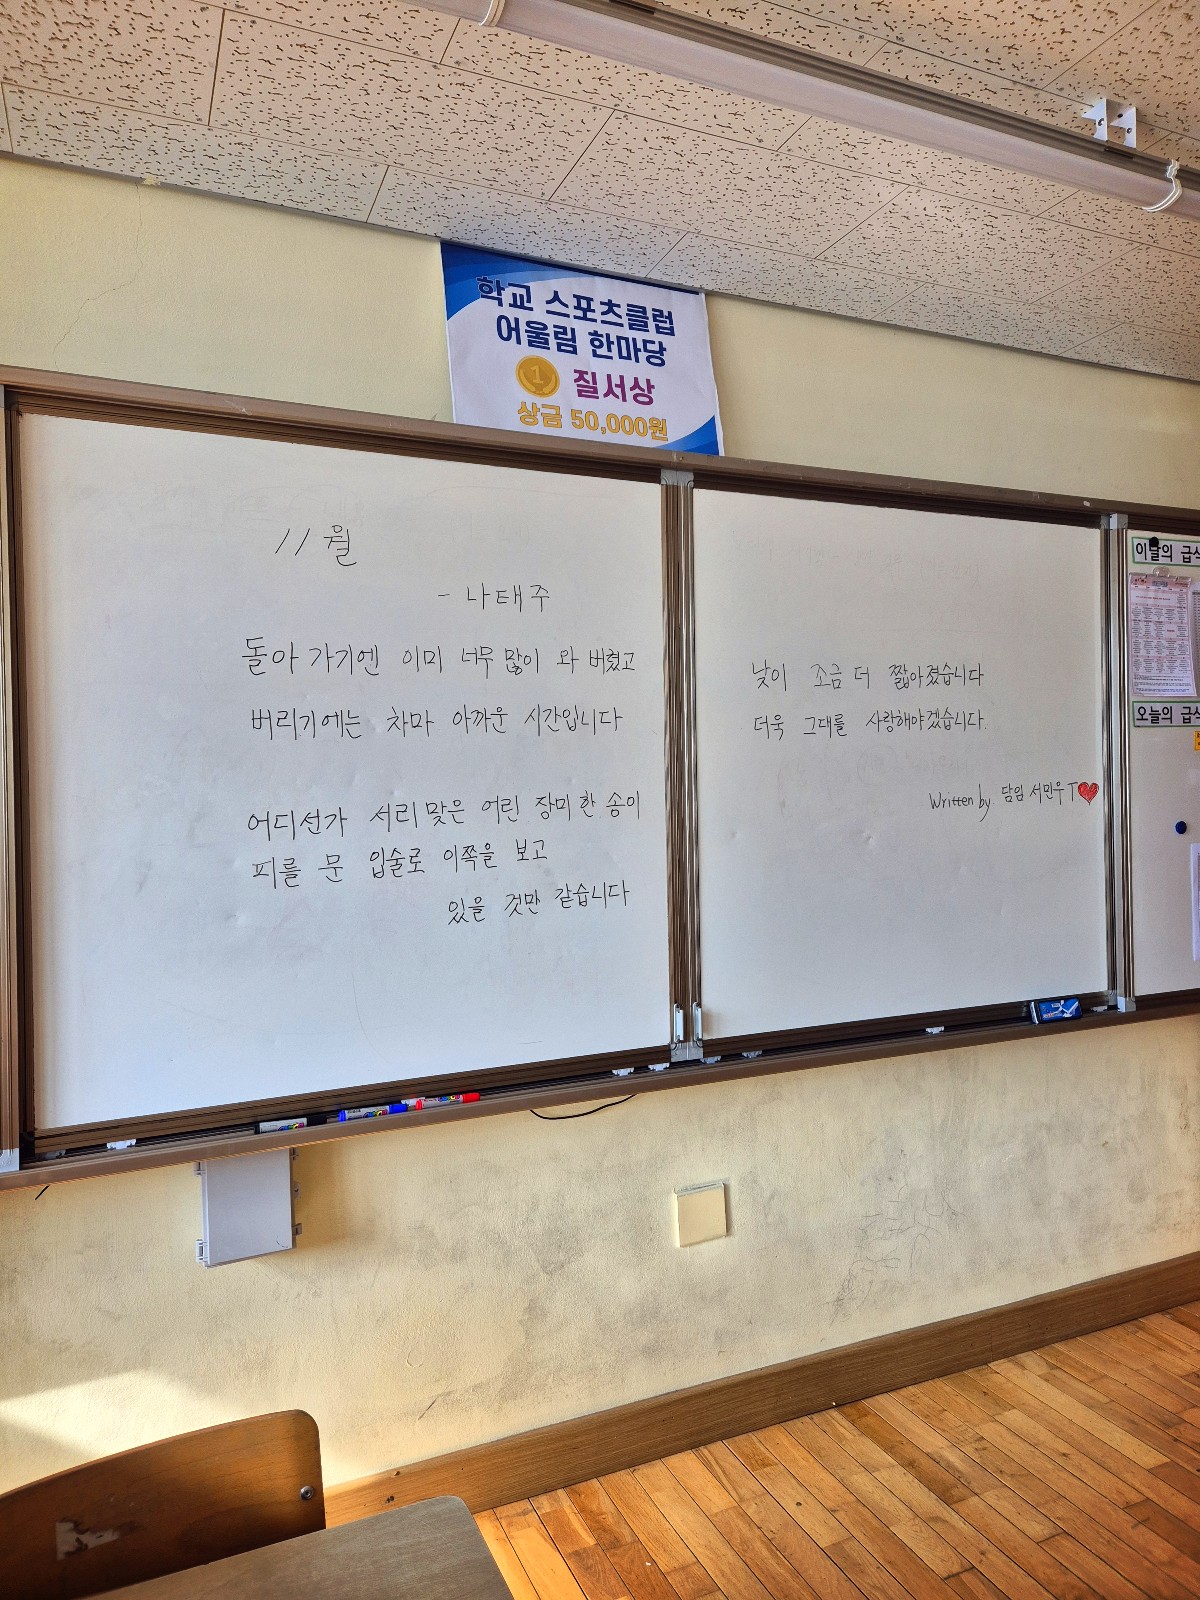 학교 스포츠클럽
어울림 한마당
1 질서상
상금 50,000원
11월
- 나태주
돌아 가기엔 이미 너무 많이 와 버렸고
버리기에는 차마 아까운 시간입니다
어디선가 서리 맞은 어린 장미 한 송이
피를 문 입술로 이쪽을 보고
있을 것만 같습니다
낮이 조금 더 짧아졌습니다
더욱 그대를 사랑해야겠습니다.
Written by. 담임 서민우T
이달의 급식
오늘의 급식